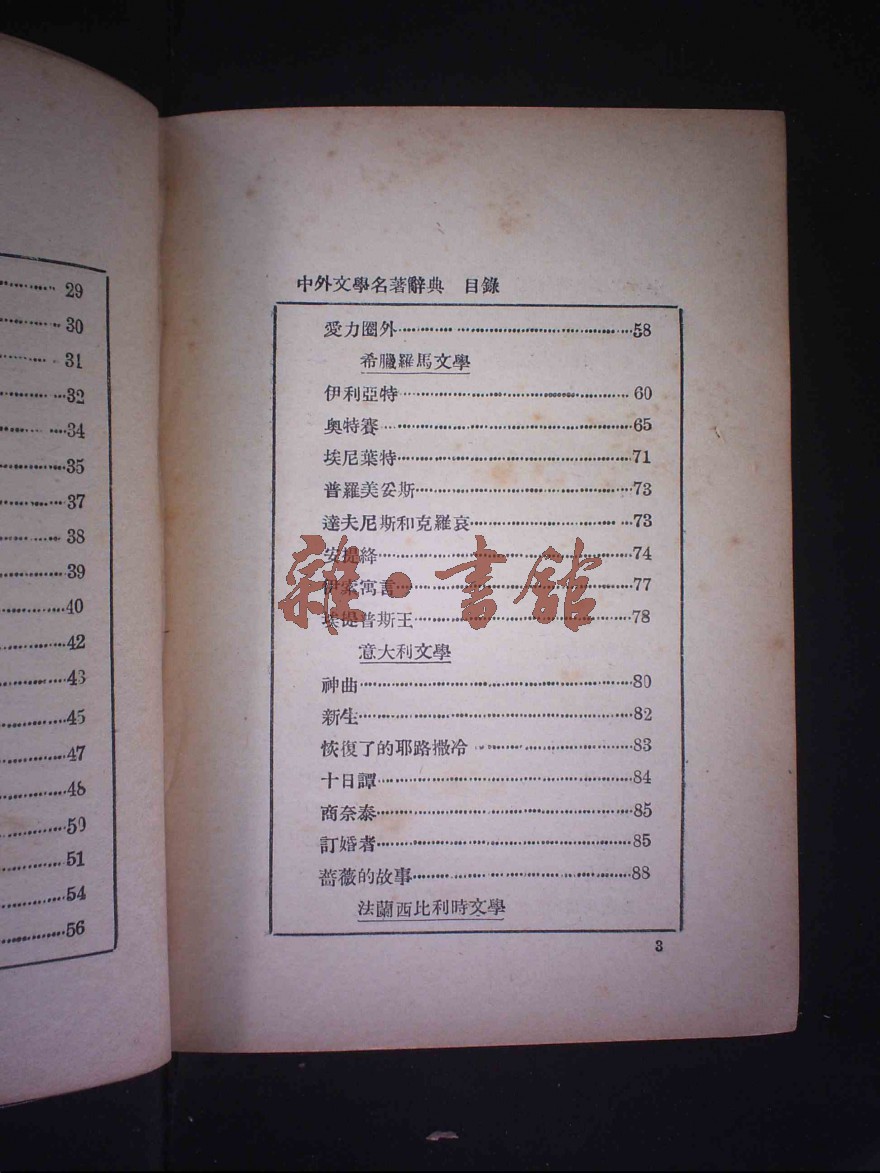 29
30
31
32
34
35
37
38
39
40
42
43
45
47
48
50
51
54
56
中外文學名著辭典 目錄
愛力圈外……58
希臘羅馬文學
伊利亞特……60
奧特賽……65
埃尼葉特……71
普羅美妥斯……73
達夫尼斯和克羅哀……73
安提絳……74
伊索寓言……77
埃提普斯王……78
意大利文學
神曲……80
新生……82
恢復了的耶路撒冷……83
十日譚……84
商奈泰……85
訂婚者……85
薔薇的故事……88
法蘭西比利時文學
3
雜·書館